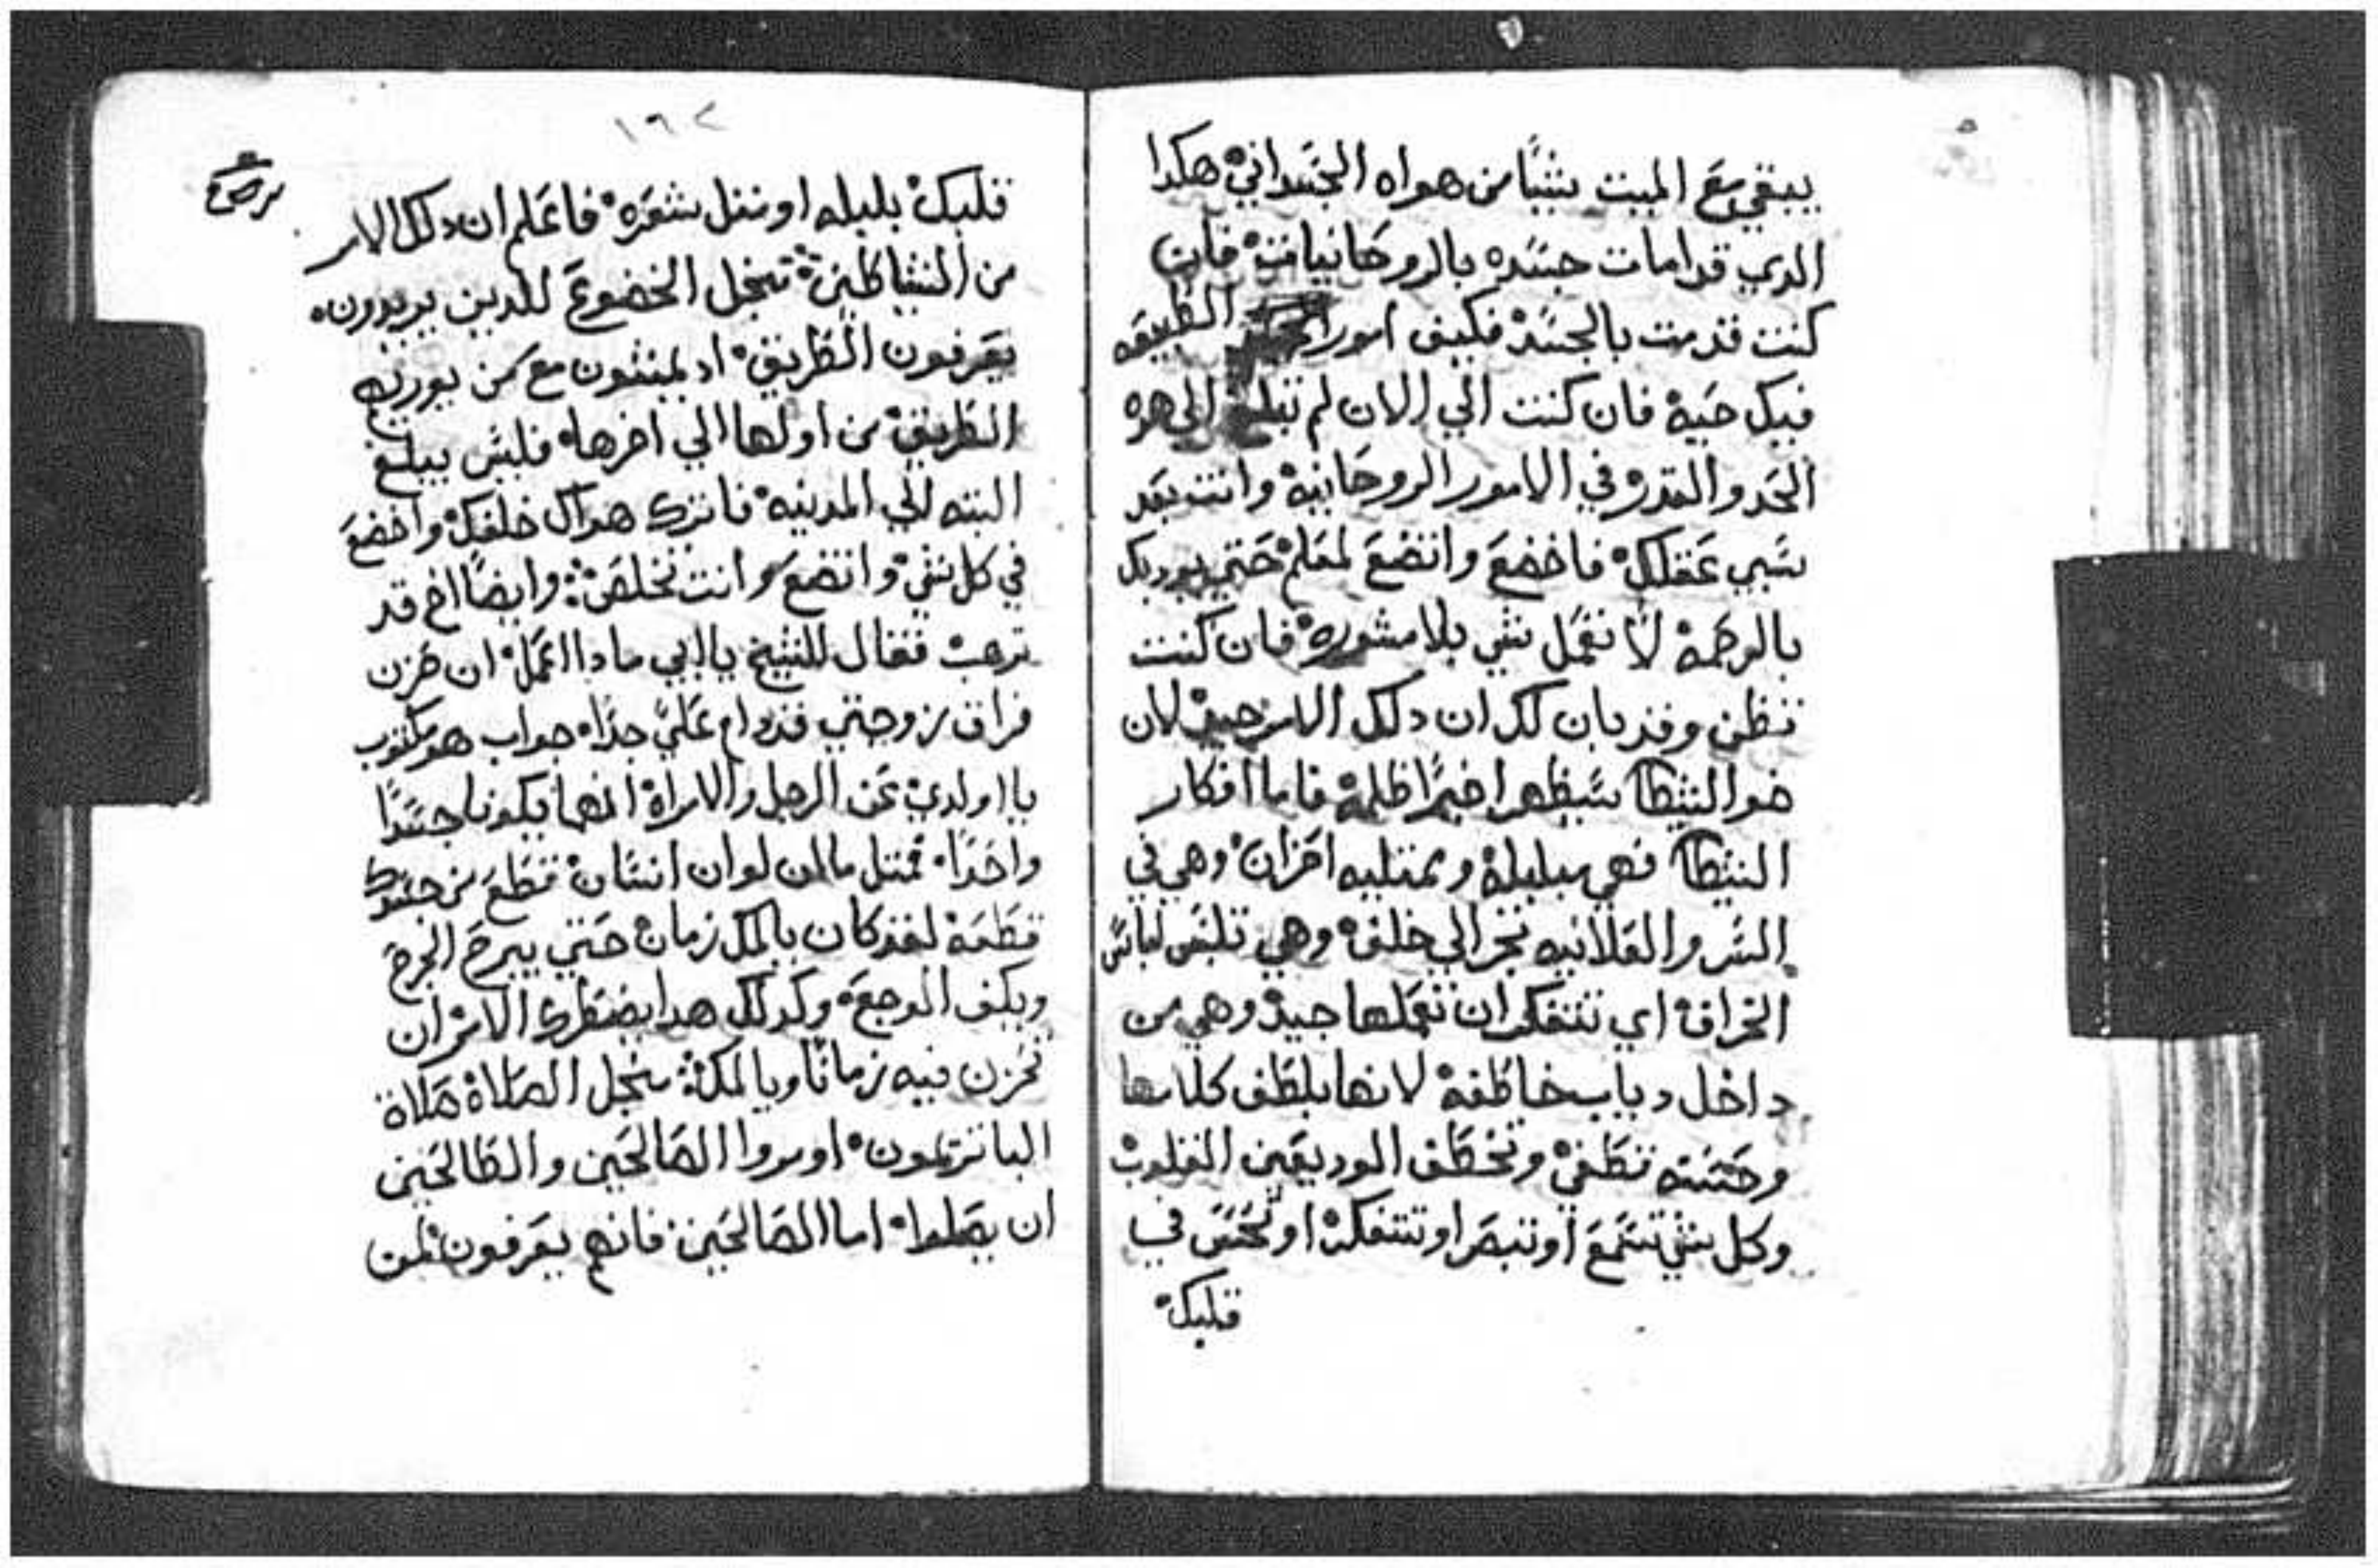 يبقي مع الميت شيئًا من هواه الجسداني هكدا
الدي قد امات جسده بالروحانيات فان
كنت قد مت بالجسد فكيف امور الطبيعه
فيك حيه فان كنت الي الان لم تبلغ الي هده
الحد والقدر في الامور الروحانيه وانت بعد
سبي عقلك فاخضع واتضع لمعلم حتي يوديك
بالرحمة لا تعمل شي بلا مشوره فان كنت
تظن وقد بان لك ان دلك الامر جيد لان
ضوا الشيطا سيظهر اخيرًا ظلمة فاما افكار
الشيطا فهي مبلبلة وممتليه احزان وهي في
السر والعلانيه تجر الي خلف وهي تلبس لباس
الخراف اي تتفكر ان تعملها جيد وهي من
داخل دياب خاطفة لانها بلطف كلامها
وحسنه تطغي وتخطف الوديعين القلوب
وكل شي تسمع او تبصر او تتفكر او تحس في
قلبك
١٦٢
قلبك بلبله او تقل شعره فاعلم ان دلك الامر
من الشياطين من اجل الخضوع للدين يريدون
يعرفون الطريق اد يمشون مع من يوريه
الطريق من اولها الي اخرها فليس يبلغ
البته الي المدينه فاترك هواك خلفك واخضع
في كل شي واتضع وانت تخلص وايضًا اخ قد
ترهب فقال للشيخ يا ابي مادا اعمل ان حزن
فراق زوجتي قد دام علي جدًا جواب هو مكتوب
يا اولدي عن الرجل والامراة انهما يكونا جسدًا
واحدًا فمتل ما لمن لو ان انسان قطع من جسدك
قطعة لقد كان بالكل زمان حتي يبرح الجرح
ويكف الوجع وكدلك هدا يضطرك الامر ان
تحزن فيه زمانًا وبالكل من اجل الصلاة صلاة
البانزيمون اومروا الصالحين والطالحين
ان يصلوا اما الصالحين فانهم يعرفون لمن